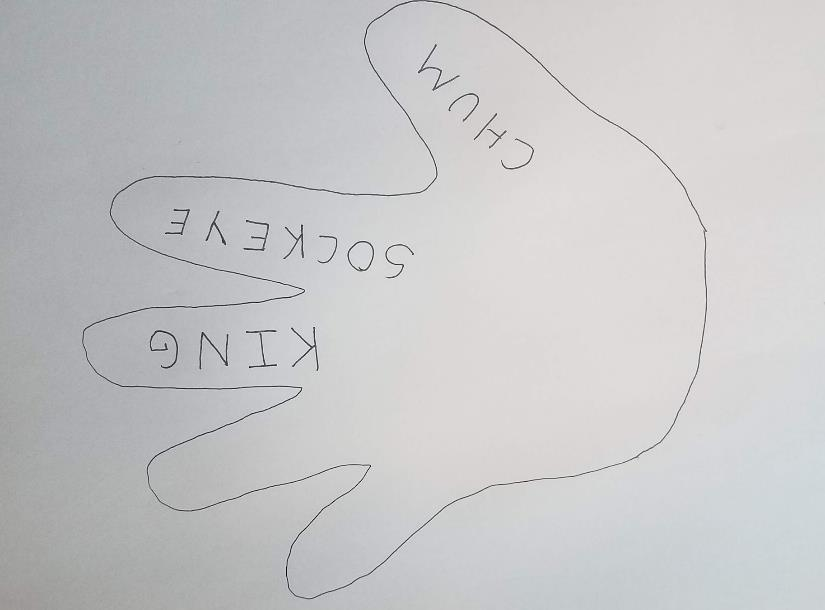 CHUM
SOCKEYE
KING